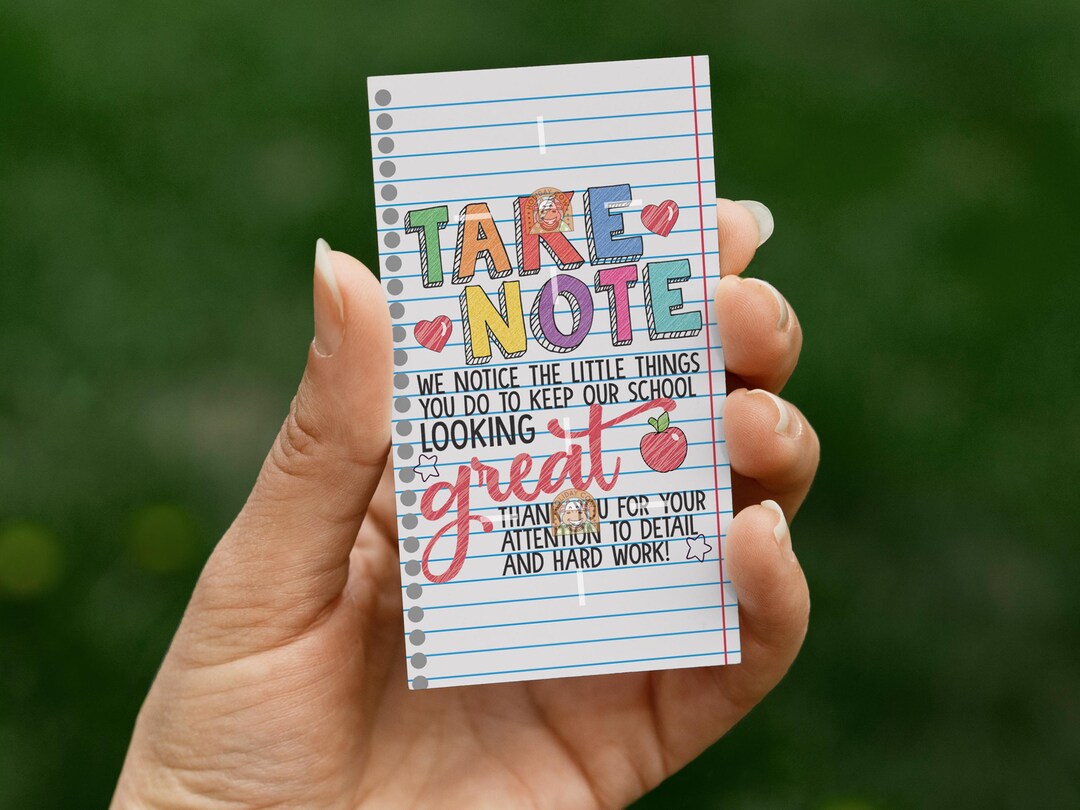 TAKE
NOTE
WE NOTICE THE LITTLE THINGS
YOU DO TO KEEP OUR SCHOOL
LOOKING
great
FOR YOUR
ATTENTION TO DETAIL
AND HARD WORK!